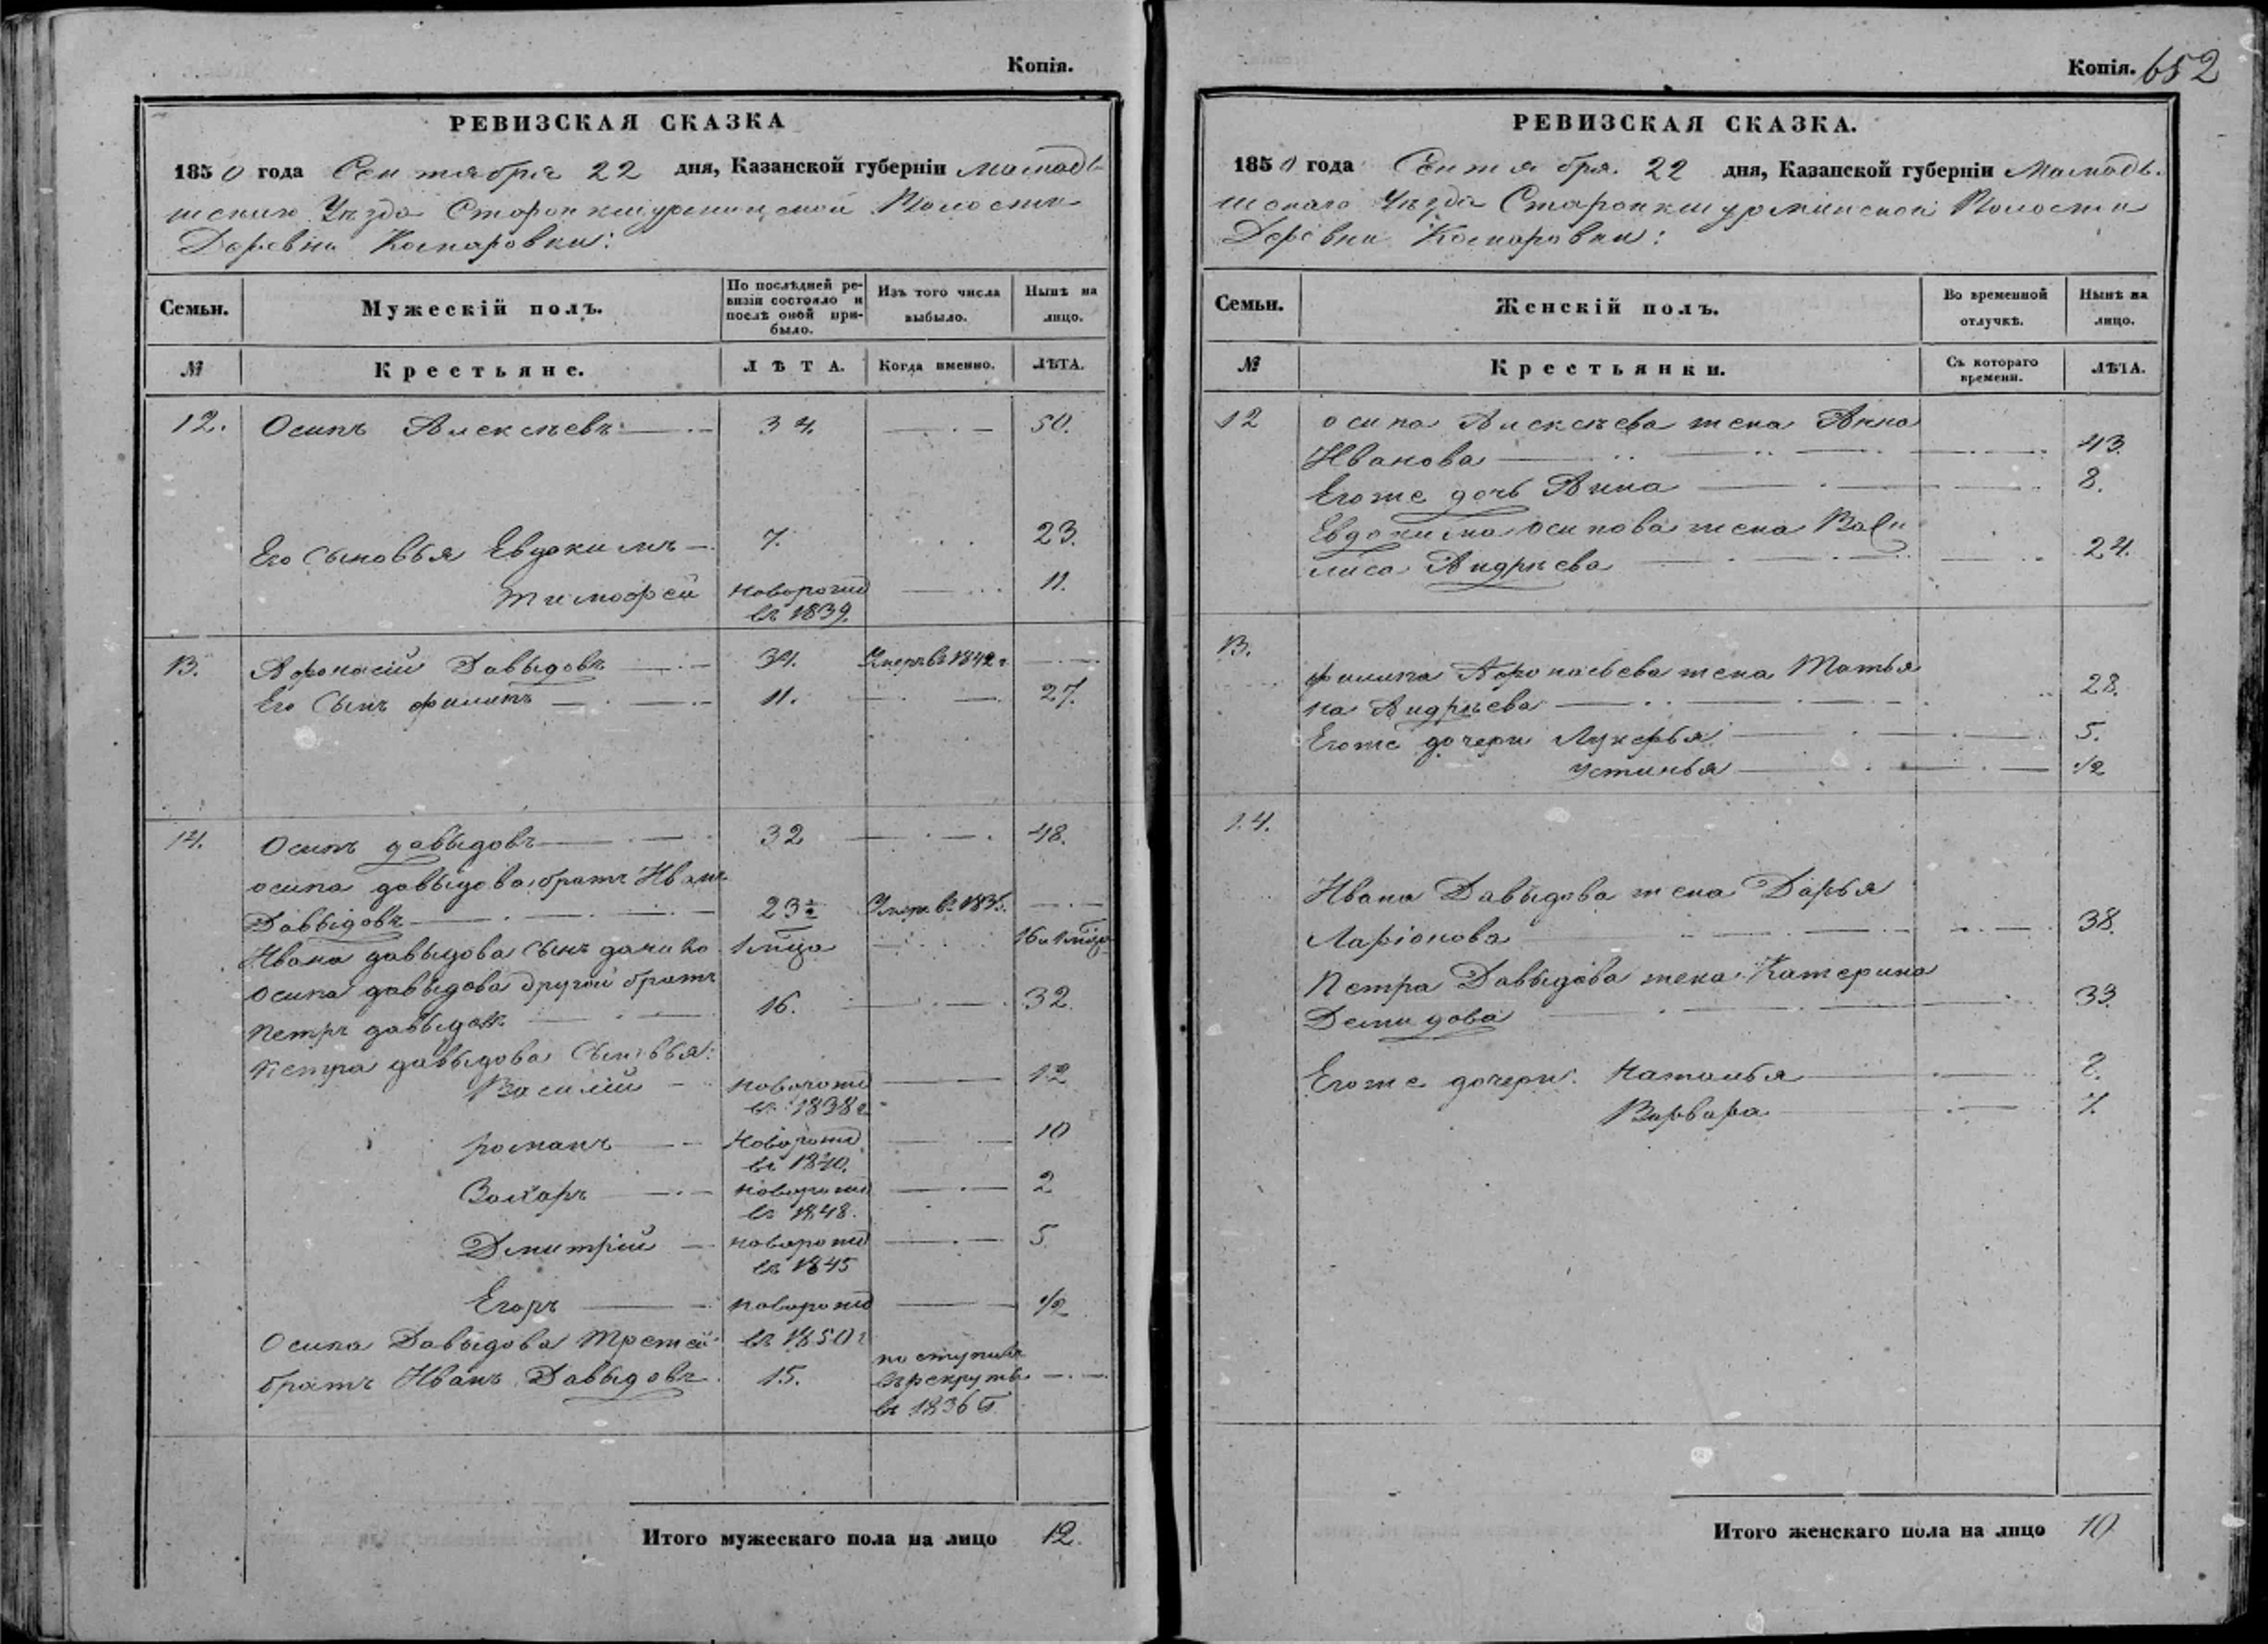 Копія.
РЕВИЗСКАЯ СКАЗКА
1850 года Сентября 22 дня, Казанской губерніи Мамады-
шскаго Уѣзда Старопкшурминской Волости
Деревни Комаровки:
Семьи. Мужескій полъ. По послѣдней ре-визіи состояло и послѣ оной при-было. Изъ того числа выбыло. Нынѣ на лицо.
№ Крестьяне. ЛѢТА. Когда именно. ЛѢТА.
12. Осипъ Алексѣевъ 34. 50.
Его Сыновья Евдокимъ 7. 23.
Тимофей новорожд 11.
въ 1839.
13. Афонасій Давыдовъ 34. Умеръ въ 1842 г
Его Сынъ филипъ 11. 27.
14. Осипъ давыдовъ 32 48.
осипа давыдова братъ Иванъ
Давыдовъ 23½ Умер. въ 1835.
Ивана давыдова Сынъ 1 мца 16 и 1 мца
осипа давыдова другой братъ
петръ давыдовъ 16. 32.
петра давыдова Сыновья:
Василій новорожд 12
въ 1838 г
романъ новорожд 10
въ 1840.
Захаръ новорожд 2
въ 1848.
Дмитрій новорожд 5
въ 1845
Егоръ новорожд ½
Осипа Давыдова третей въ 1850 г
братъ Иванъ Давыдовъ 15. поступилъ
въ рекруты
въ 1836 г
Итого мужескаго пола на лицо 12.
Копія. 652
РЕВИЗСКАЯ СКАЗКА.
1850 года Сентября 22 дня, Казанской губерніи Мамады-
шскаго Уѣзда Старопкшурминской Волости
Деревни Комаровки:
Семьи. Женскій полъ. Во временной отлучкѣ. Нынѣ на лицо.
№ Крестьянки. Съ котораго времени. ЛѢТА.
12 осипа Алексѣева жена Анна
Иванова 43.
Егоже дочь Анна 8.
Евдокима осипова жена Васи
лиса Андрѣева 24.
13.
филипа Афонасьева жена Татья
на Андрѣева 28.
Егоже дочери Лукерья 5.
устинья ½
14.
Ивана Давыдова жена Дарья
Ларіонова 38.
Петра Давыдова жена Катерина
Демидова 33.
Егоже дочери: Наталья 8.
Варвара 7.
Итого женскаго пола на лицо 10